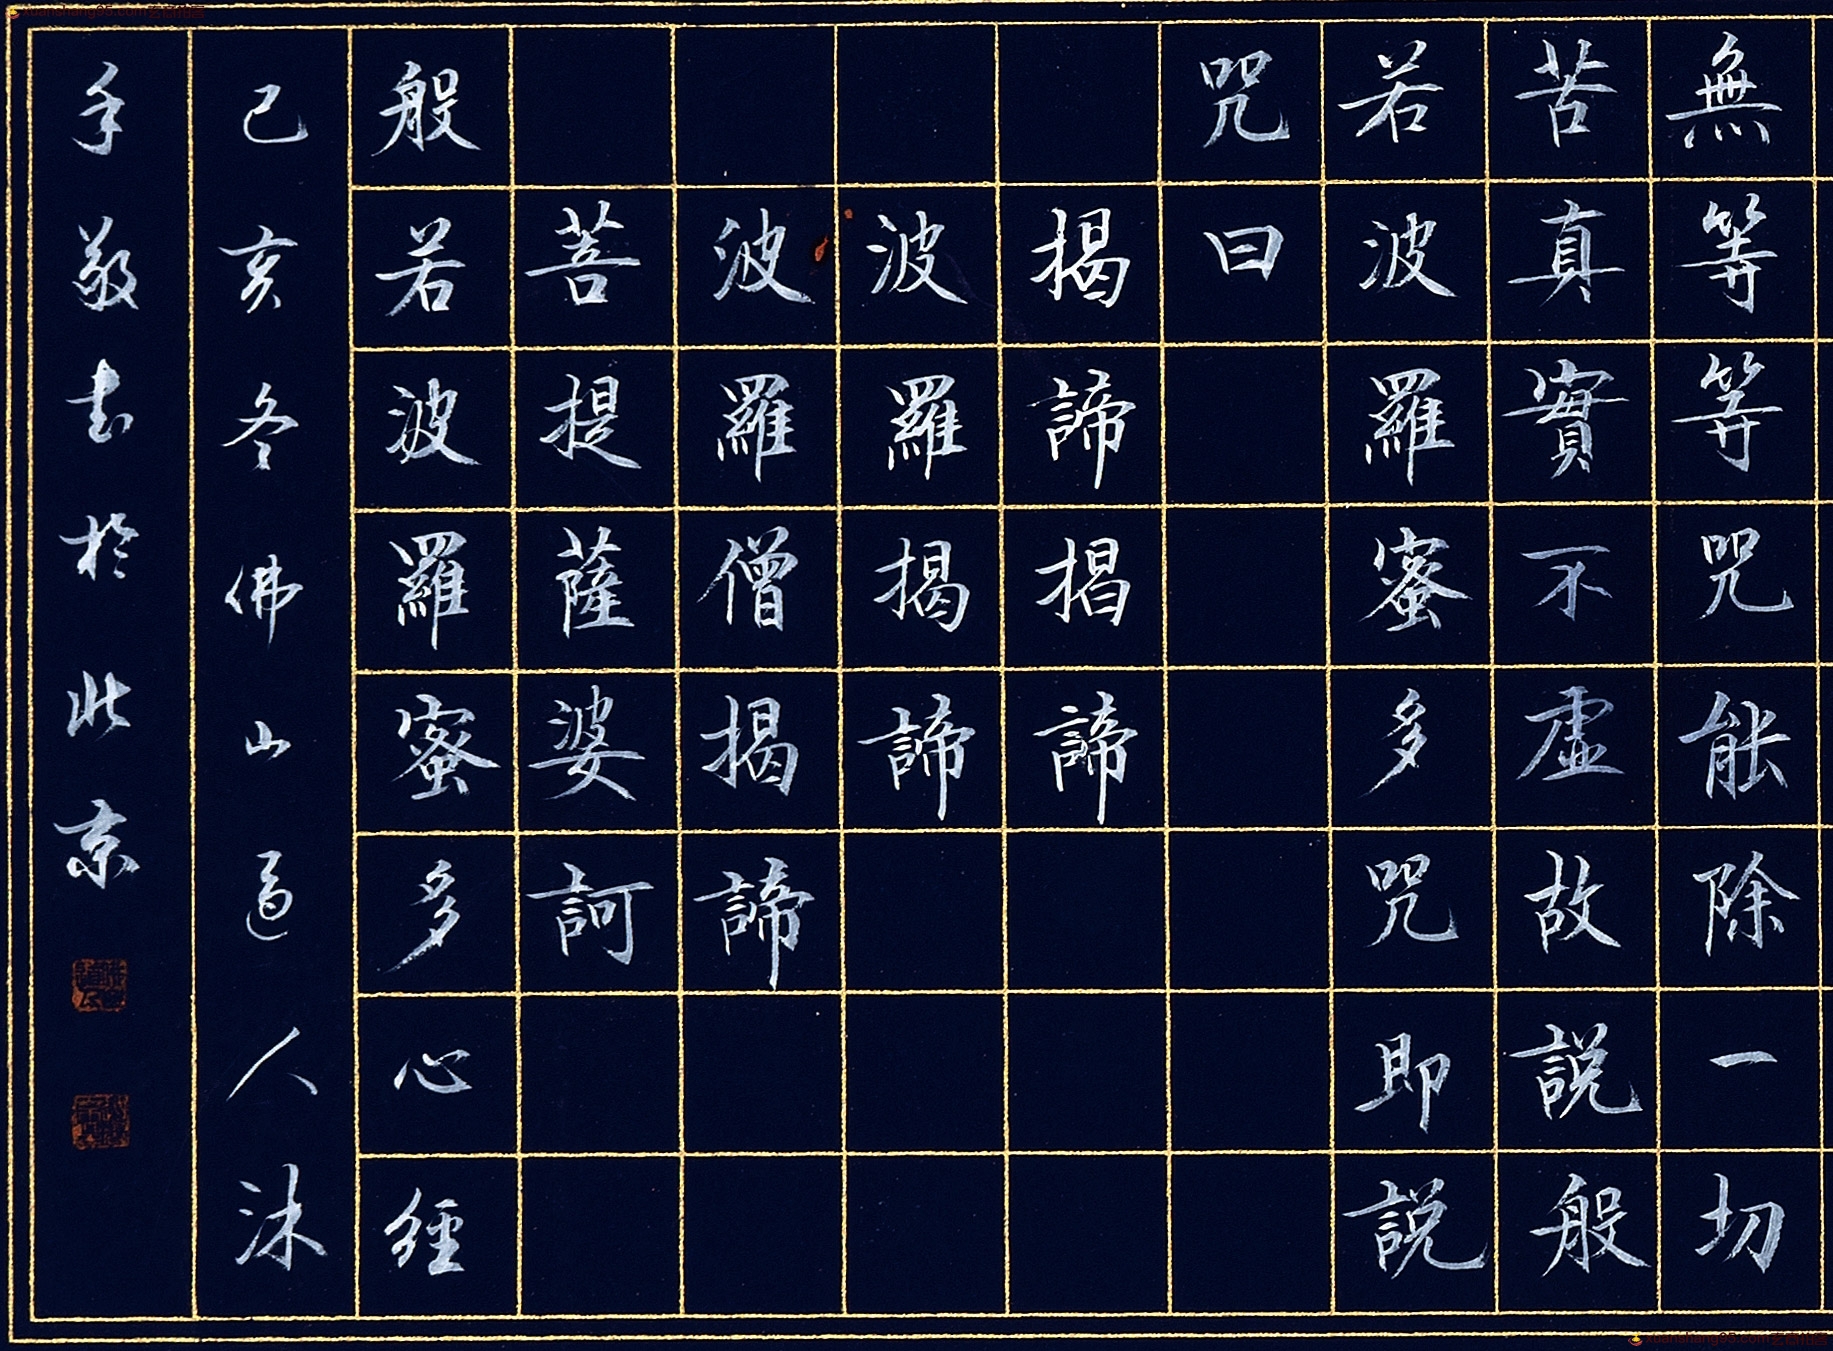 無等等咒能除一切
苦真實不虛故説般
若波羅蜜多咒即説
咒曰
揭諦揭諦
波羅揭諦
波羅僧揭諦
菩提薩婆訶
般若波羅蜜多心經
己亥冬佛山道人沐
手敬書於北京